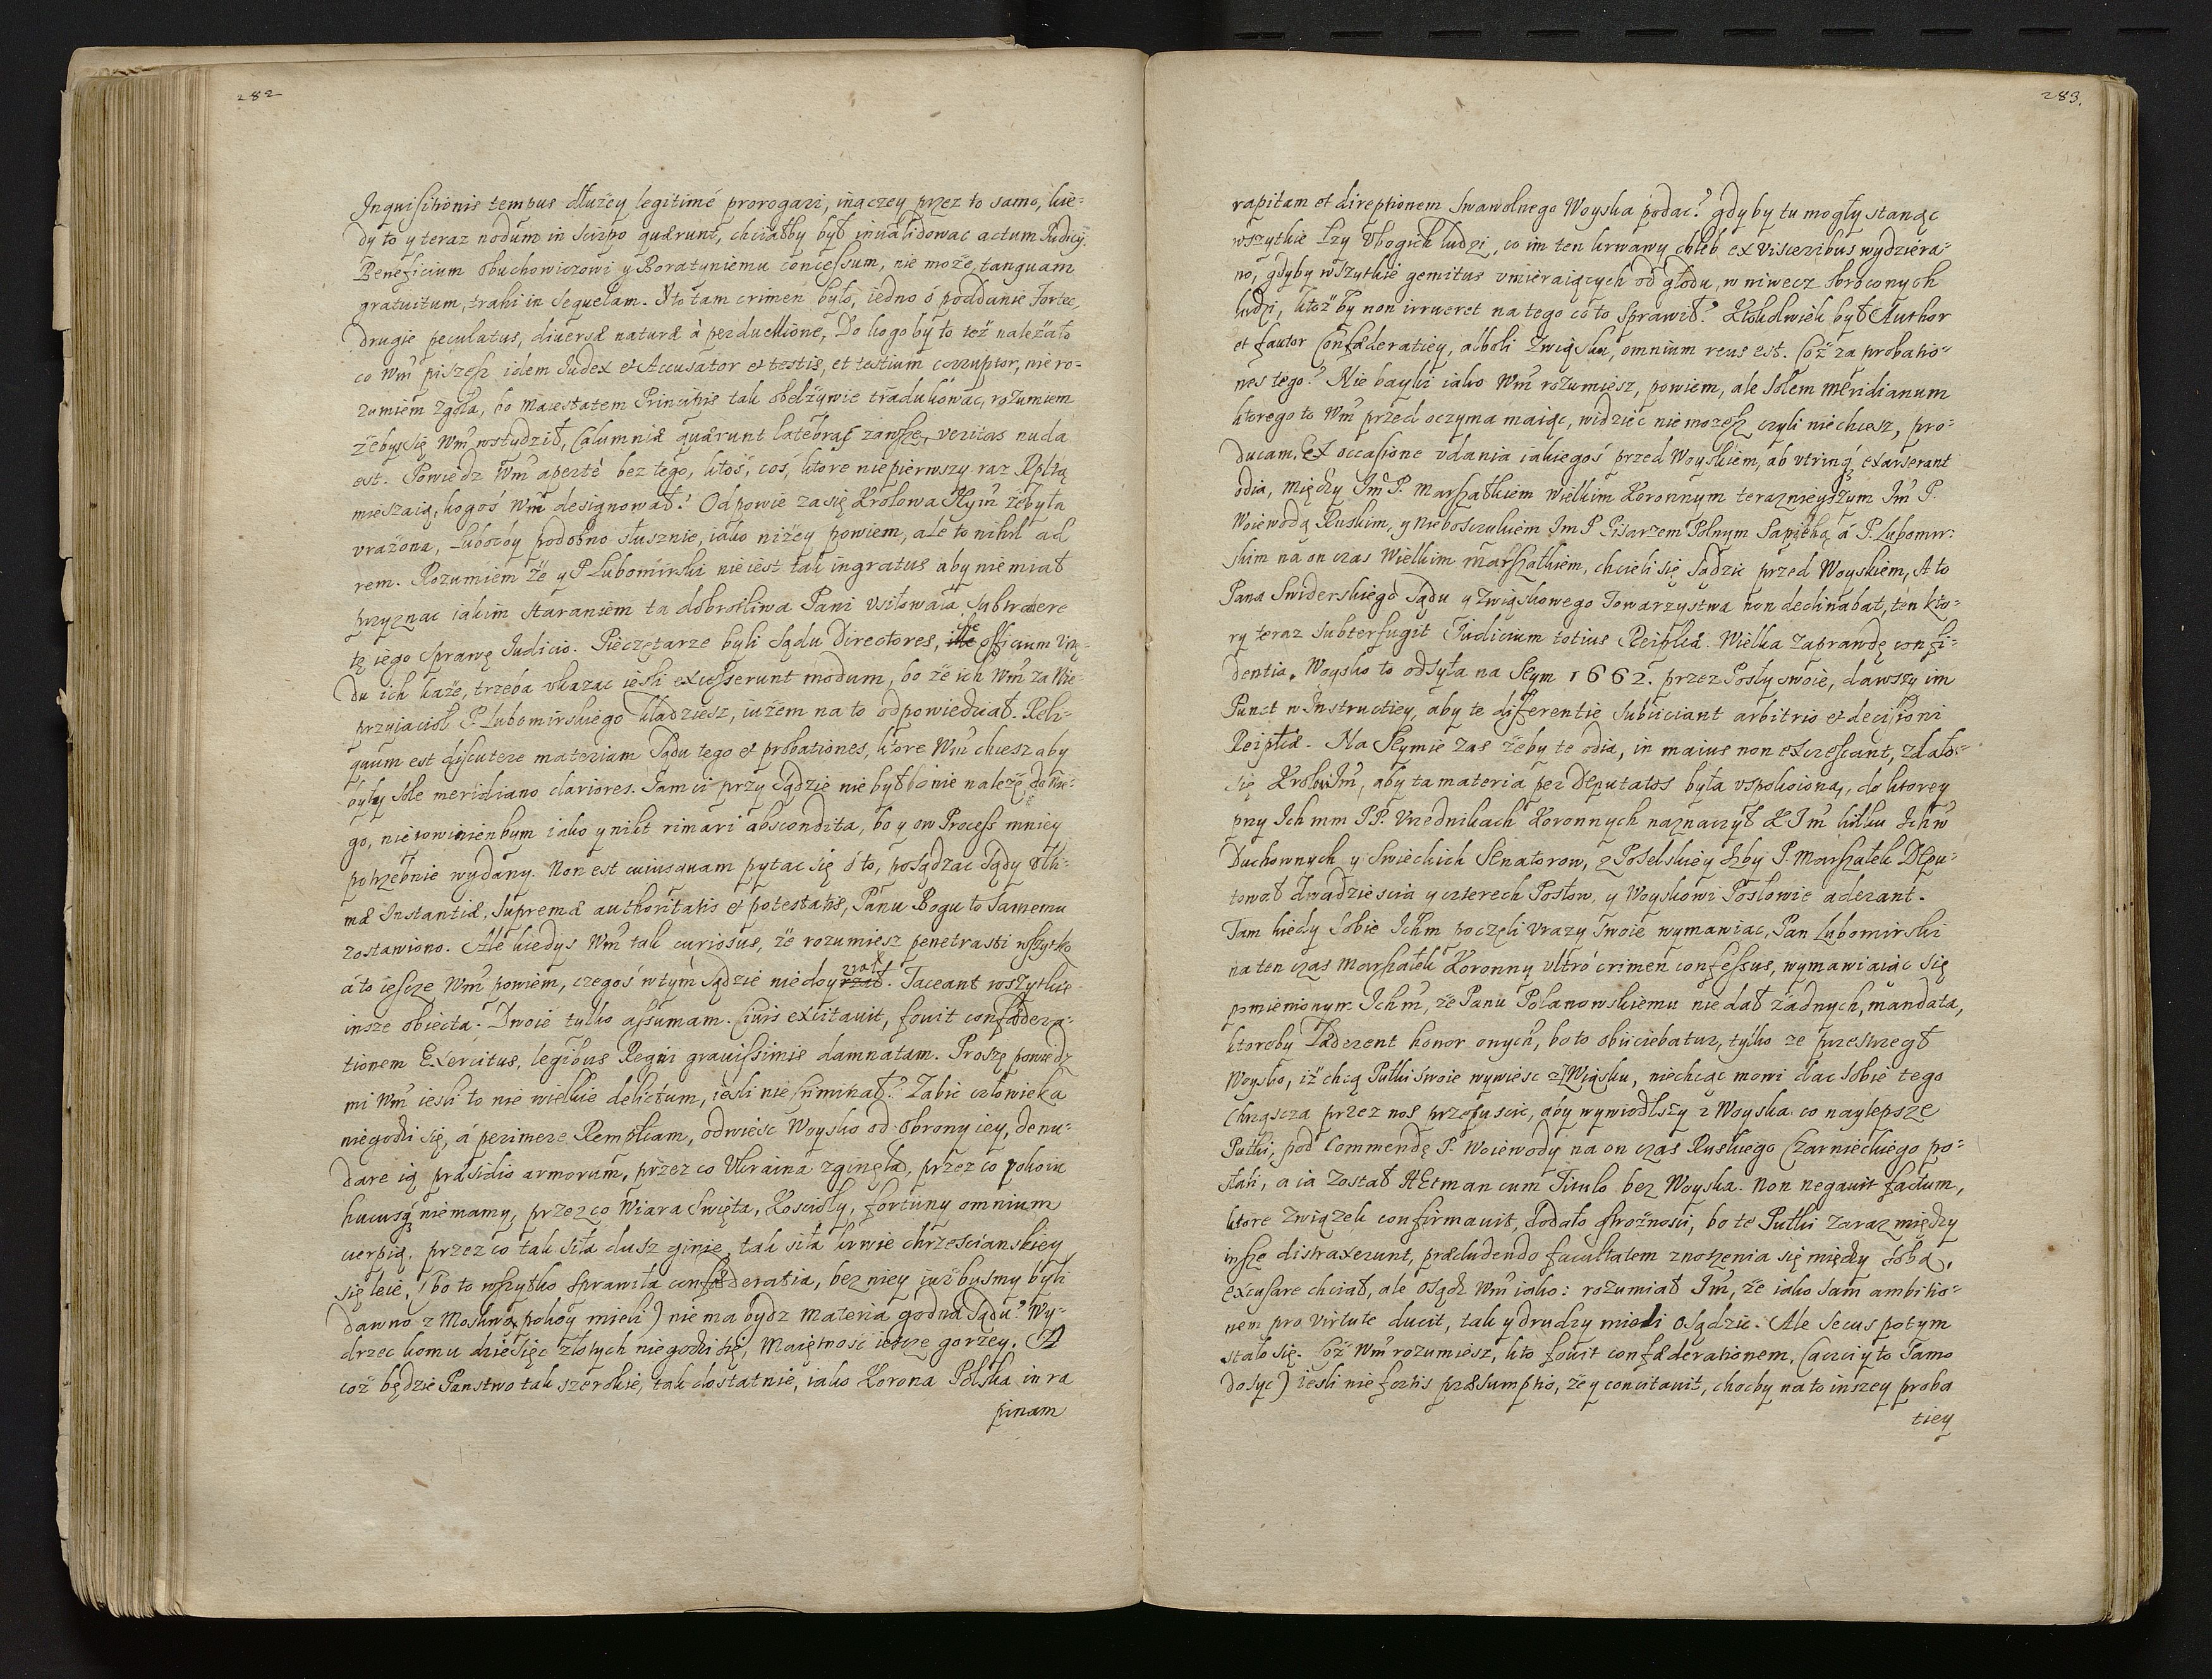 282
Inquisitionis tempus dłużey legitimé prorogari, inączey przez to samo, kie=
dy to y teraz nodum in scirpo quærunt, chciałby był inualidowac actum Iudicÿ.
Beneficium Obuchowiczowi y Boratyniemu concessum, nie może, tanquam
gratuitum, trahi in sequelam. Y to tam crimen było, iedno ó poddanie Fortec,
drugie peculatus, diuersæ naturæ à perduellione, Do kogo by to też należało
co Wm̃ piszesz idem Iudex et Accusator et testis, et testium corruptor, nie ro=
zumiem zgoła, bo Maiestatem Principis tak obelżywie tradukowac, rozumiem
żebyś się Wm̃ wstydził, Calumniæ quærunt latebras zawsze, veritas nuda
est. Powiedz Wm̃ aperté bez tego, ktoś, coś, ktore niepierwszy raz Rpltą
mieszaią, kogoś Wm̃ designował? Odpowie za się Krolowa Jeym̃ że była
vrażona, lubo by podobno słusznie, iako niżey powiem, ale to nihil ad
rem. Rozumiem że y P Lubomirski nie iest tak ingratus aby nie miał
przyznac iakim staraniem ta dobrotliwa Pani vsiłowała, subtradere
tę iego sprawę Iudicio. Pieczętarze byli Sądu Directores, officium Vrzę=
du ich każe, trzeba vkazac iesli excesserunt modum, bo że ich Wm̃ za Nie=
przyiacioł P. Lubomirskiego kładziesz, iużem na to odpowiedział. Reli=
quum est discutere materiam Sądu tego et probationes, ktore Wm̃ chcesz aby
były sole meridiano clariores. Sam ci przy Sądzie nie był bo nie należę do nie=
go, nie powinienbym iako y nikt rimari abscondita, bo y ow Process mniey
potrzebnie wydany. Non est cuiusquam pytac się ó to, posądzac Sądy vlti=
mæ Instantiæ, supremæ authoritatis et potestatis, Panu Bogu to samemu
zostawiono. Ale kiedys Wm̃ tak curiosus, że rozumiesz penetrasti wszytko
á to iescze Wm̃ powiem, czegoś w tym Sądzie niedoyrzał. Taceant wszytkie
insze obiecta. Twoie tylko assumam. Ciuis excitauit, fouit confœdera=
tionem Exercitus, legibus Regni grauissimis damnatam. Proszę powiedz
mi Wm̃ iesli to nie wielkie delictum, iesli nie Zabic człowieka
niegodzi się, á perimere Remplicam, odwiesc Woysko od obrony iey, denu=
dare ią præsidio armorum, przez co Vkraina zginęła, przez co pokoiu
hucusq̨ niemamy, przez co Wiara Swięta, Koscioły, fortuny omnium
cierpią, przez co tak siła dusz ginie, tak siła krwie chrzescianskiey
się leie, (bo to wszytko sprawiła confœderatia, bez niey iużbysmy byli
dawno z Moskwą pokoy mieli) nie ma bydz materia godna Sądu? Wy=
drzec komu dziesięc złotych niegodzi się, Maiętnosc iescze gorzey. A
coż będzie Panstwo tak szerokie, tak dostatnie, iako Korona Polska in ra
pinam
283.
rapitam et direptionem swawolnego Woyska podac? gdyby tu mogły stanąc
wszytkie łzy Vbogich ludzi, co im ten krwawy chleb ex visceribus wydziera=
no, gdyby wszytkie gemitus vmieraiących od głodu, w niwecz obroconych
ludzi, ktoż by non irrueret na tego co to sprawił? Ktokolwiek był Author
et fautor Confœderatiey, alboli Związku, omnium reus est. Coż za probatio=
nes tego? Nie bayki iako Wm̃ rozumiesz, powiem, ale solem meridianum
ktorego to Wm̃ przed oczyma maiąc, widziec niemożesz czyli niechcesz, pro=
ducam. Ex occasione vdania iakiegoś przed Woyskiem, ab vtrinq̨ exarserant
odia, między Im̃ P. Marszałkiem Wielkim Koronnym teraznieyszym Im̃ P.
Woiewodą Ruskim, y nieboszczykiem Im P Pisarzem Polnym Sapiehą á P. Lubomir=
skim na on czas Wielkim Marszałkiem, chcieli się Sądzic przed Woyskiem, A to
Pana Swiderskiego Sądu y Związkowego Towarzystwa non declinabat, ten kto=
ry teraz subterfugit Iudicium totius Reiplicæ. Wielka zaprawdę confi=
dentia. Woysko to odsyła na Seym 1662. przez Posły swoie, dawszy im
Punct w Instructiey, aby te differentie subiiciant arbitrio et decisioni
Reiplicæ. Na Seymie zas żeby te odia, in maius non excrescant, zdało=
się Krolowi Im̃, aby ta materia per Deputatos była vspokoiona, do ktorey
przy Ich mm PP. Vrzednikach Koronnych naznaczył K Im̃ kilku Ichm̃
Duchownych y Swieckich Senatorow, z Poselskiey Izby P. Marszałek Depu=
tował dwadziescia y czterech Posłow, y Woyskowi Posłowie aderant.
Tam kiedy sobie Ichm poczęli vrazy swoie wymawiac, Pan Lubomirski
na ten czas Marszałek Koronny vltro crimen confessus, wymawiaiąc się
pomienionym Ichm̃, że Panu Polanowskiemu nie dał żadnych, mandata,
ktoreby læderent honor onych, bo to obiiciebatur, tylko że przestrzegł
Woysko, iż chcą Pułki swoie wywiesc z Związku, niechcąc mowi dac sobie tego
Chrząscza przez nos przepuscic, aby wywiodłszy z Woyska co naylepsze
Pułki, pod Commendę P. Woiewody na on czas Ruskiego Czarnieckiego po=
stali, a ia został Hetman cum Titulo bez Woyska. Non negauit factum,
ktore Związek confirmauit, dodało ostrożnosci, bo te Pułki zaraz między
insze distraxerunt, præcludendo facultatem znoszenia się między sobą.
Excusare chciał, ale osądz Wm̃ iako: rozumiał Im̃, że iako sam ambitio=
nem pro virtute ducit, tak y drudzy mieli osądzic. Ale secus potym
stało się. Coż Wm̃ rozumiesz, kto fouit confœderationem, (acz ci y to samo
dosyc) iesli nie fortis præsumptio, że y concitauit, chocby na to inszey proba
tiey